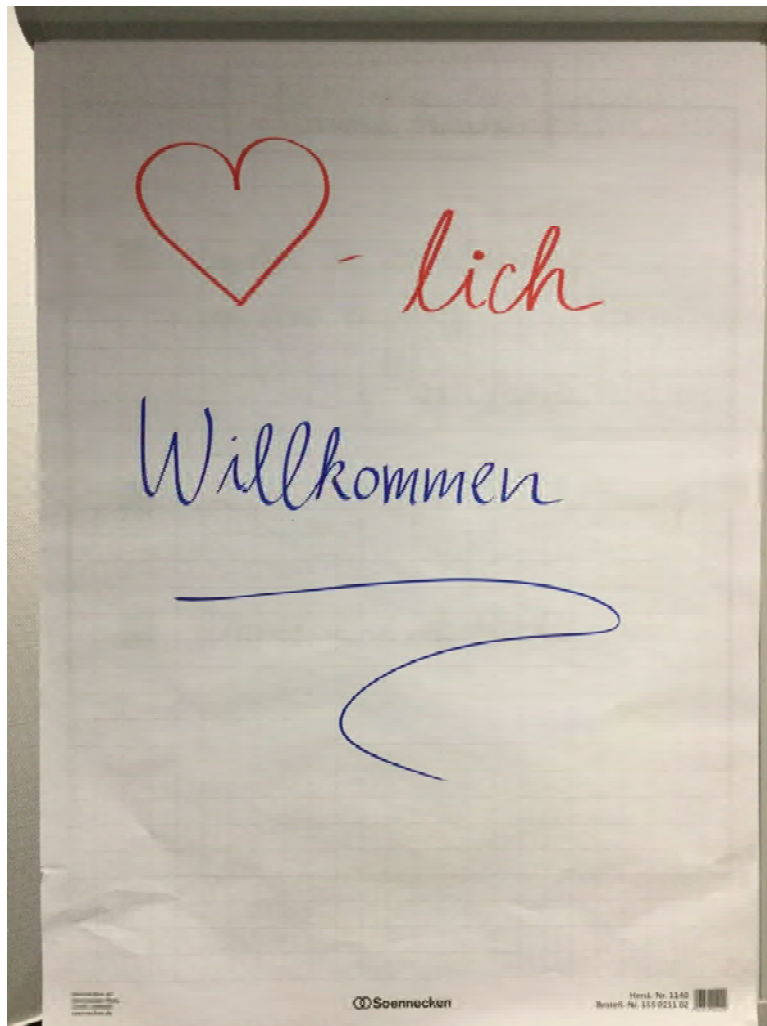 - lich
Willkommen
Soennecken
Herst. Nr. 1140
Bestell-Nr.